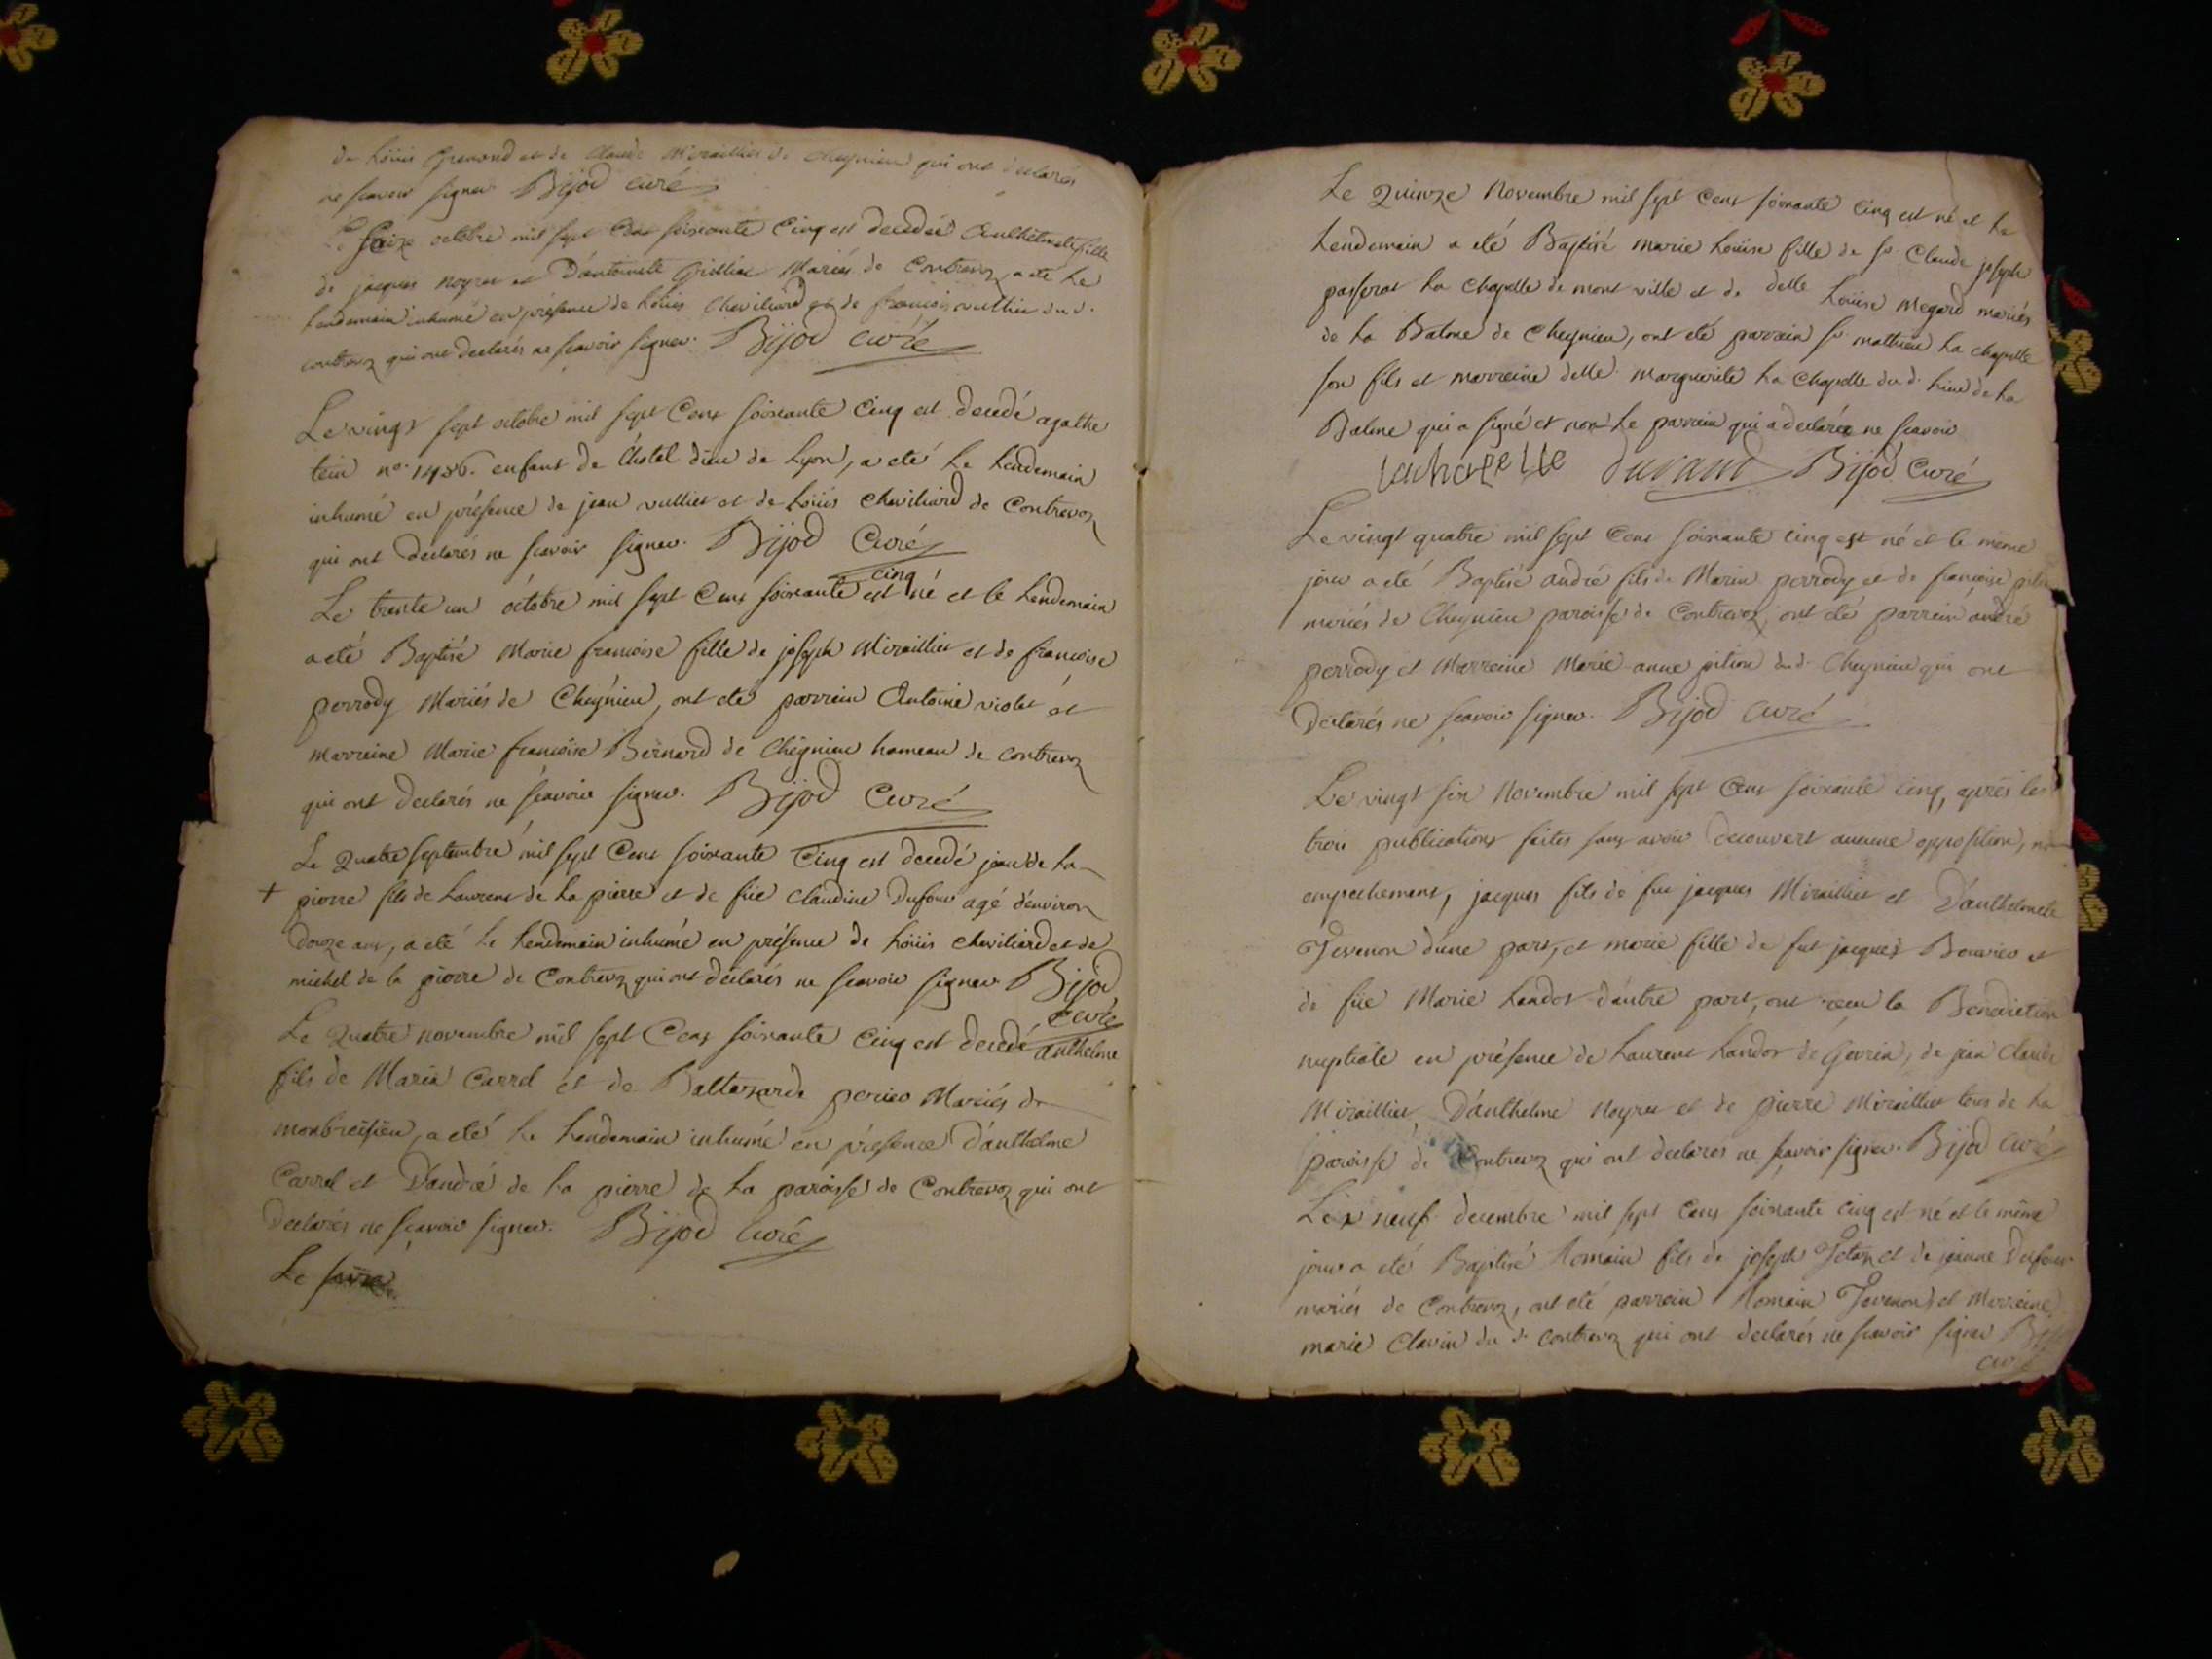 de Loüis Grenond et de Claude Miraillier de Cheynieu qui ont declarés
ne scavoir signer. Bijod curé
Le seize octobre mil sept Cens soixante Cinq est decedée Anthelmete fille
de jacques noyret et D'antoinete Grilliet Mariés de Contrevoz, a eté Le
Lendemain inhumé en présence de Loüis Chevilliard et de francois vullier du d.
contrevoz qui ont declarés ne scavoir signer. Bijod curé
Le vingt sept octobre mil sept Cens soixante Cinq est decedé agathe
tein no. 1456. enfant de L'hotel dieu de Lyon, a eté Le Lendemain
inhumé en présence de jean vullier et de Loüis Chevilliard de Contrevoz
qui ont declarés ne scavoir signer. Bijod Curé
cinq
Le trente un octobre mil sept Cens soixante est né et le Lendemain
a eté Baptisé Marie francoise fille de joseph Miraillier et de francoise
perrody Mariés de Cheynieu, ont eté parrein Antoine violet et
marreine Marie francoise Bernard de Chegnieu hameau de contrevoz
qui ont declarés ne scavoir signer. Bijod Curé
Le Quatre septembre mil sept Cens soixante Cinq est decedé jean de La
+ pierre fils de Laurent de La pierre et de füe Claudine Dufour agé d'environ
douze ans, a eté Le Lendemain inhumé en présence de Loüis chevilliard et de
michel de la pierre de Contrevoz qui ont declarés ne scavoir signer Bijod
Curé
Le Quatre novembre mil sept Cens soixante Cinq est decedé anthelme
fils de Marin Carrel et de Baltezarde perier Mariés de
monbreisieu, a eté Le Lendemain inhumé en présence D'anthelme
Carrel et D'andré de La pierre de La paroisse de Contrevoz qui ont
Declarés ne scavoir signer. Bijod Curé
Le
Le Quinze Novembre mil sept Cens soixante Cinq est né et Le
Lendemain a eté Baptisé Marie Loüise fille de sr. Claude joseph
passerat La Chapelle de mont ville et de delle Loüise Megard mariés
de La Balme de Cheynieu, ont eté parrein sr. mathieu La chapelle
son fils et marreine delle. Marguerite La Chapelle du d. Lieu de La
Balme qui a signé et non Le parrein qui a declarée ne scavoir
Lachapelle durand Bijod Curé
Le vingt quatre mil sept Cens soixante cinq est né et le même
jour a eté Baptisé andré fils de Marin perrody et de francoise pition
mariés de Cheynieu paroisse de Contrevoz, ont eté parrein andré
perrody et Marreine Marie anne pition du d. Cheynieu qui ont
Declarés ne scavoir signer. Bijod curé
Le vingt six Novembre mil sept Cens soixante cinq, après les
trois publications faites sans avoir decouvert aucune opposition, ni
empechement, jacques fils de feu jacques Miraillier et D'anthelmete
Tevenon d'une part, et marie fille de fut jacques Bouvier et
de füe Marie Landot d'autre part, ont recu la Benediction
nuptiale en présence de Laurent Landot de Gevrin, de jean Claude
Miraillier, D'anthelme Noyret et de pierre Miraillier tous de La
paroisse de Contrevoz qui ont declarés ne scavoir signer. Bijod Curé
Le neuf decembre mil sept Cens soixante cinq est né et le même
jour a eté Baptisé Romain fils de joseph Jetaz et de jeanne Dufour
mariés de Contrevoz, ont eté parrein Romain Tevenon et Marreine
marie Clavin du d. contrevoz qui ont declarés ne scavoir signer Bijod
curé